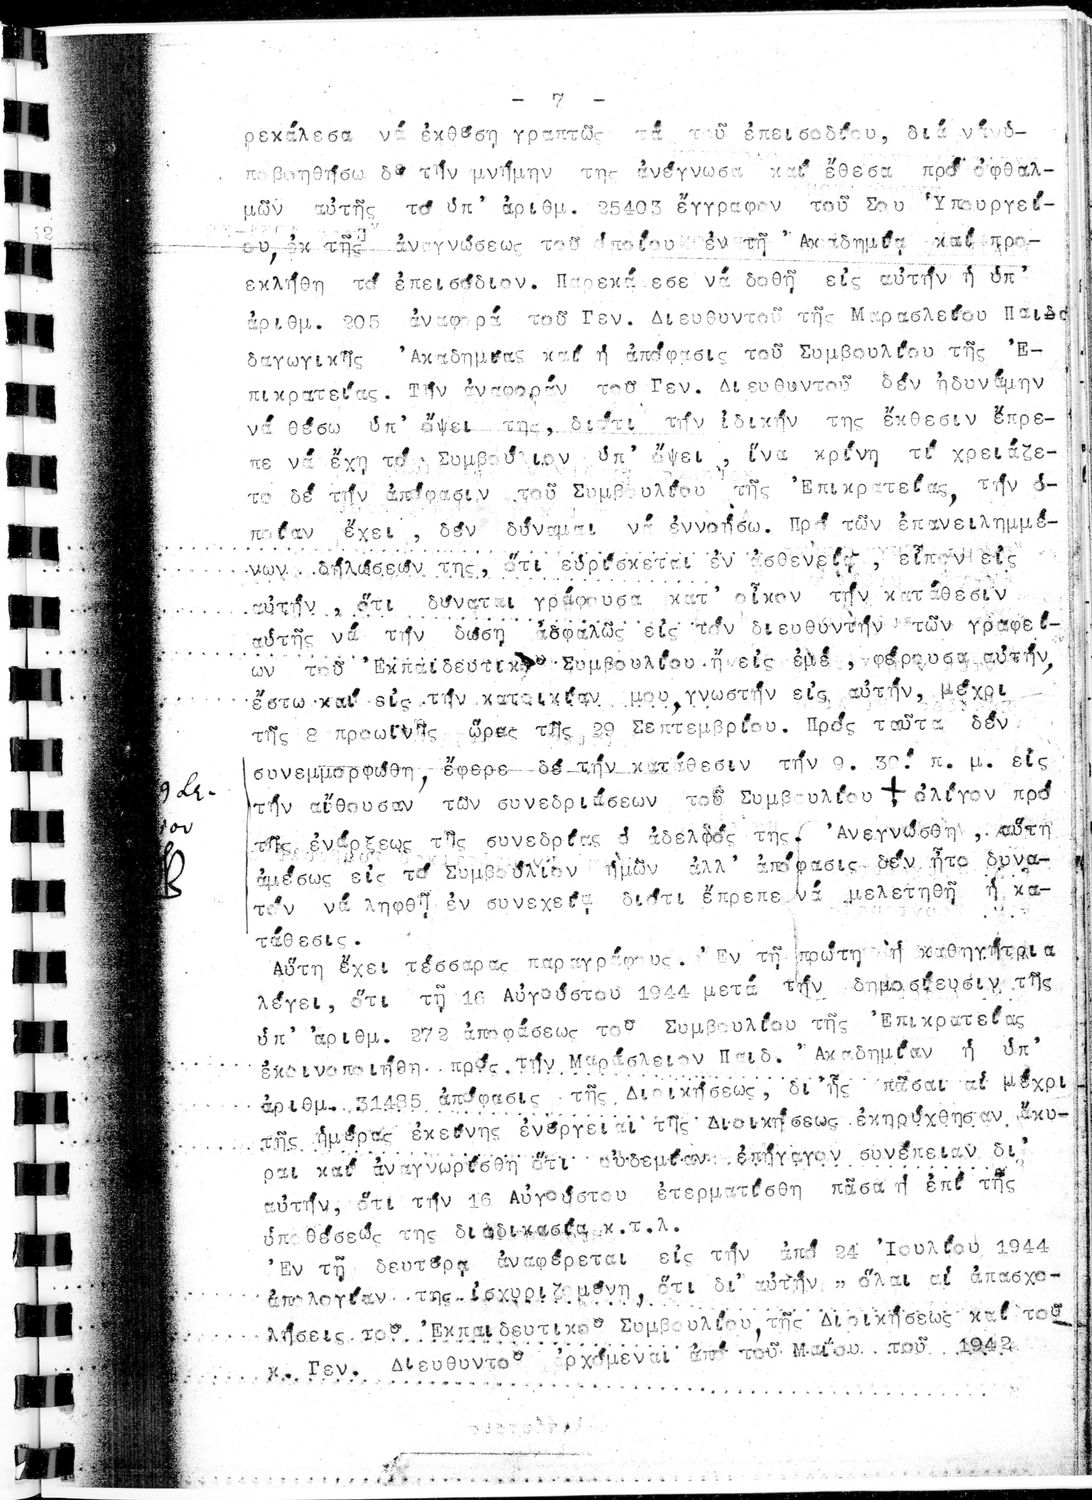 - 7 -
ρεκάλεσα νά ἐκθέση γραπτῶς τά τοῦ ἐπεισοδίου, διά νά ύ-
ποβοηθήσω δέ τήν μνήμην της ἀνέγνωσα καί ἔθεσα πρό ὀφθαλ-
μῶν αὐτῆς τό ὑπ' ἀριθμ. 25403 ἔγγραφον τοῦ Σου Ὑπουργεί-
ου, ἐκ τῆς ἀναγνώσεως τοῦ ὁποίου ἐν τῇ Ἀκαδημίᾳ καί προ-
εκλήθη τό ἐπεισόδιον. Παρεκάλεσε νά δοθῇ εἰς αὐτήν ἡ ὑπ'
ἀριθμ. 205 ἀναφορά τοῦ Γεν. Διευθυντοῦ τῆς Μαρασλείου Παι
δαγωγικῆς Ἀκαδημίας καί ἡ ἀπόφασις τοῦ Συμβουλίου τῆς Ἐ-
πικρατείας. Τήν ἀναφοράν τοῦ Γεν. Διευθυντοῦ δέν ἠδυνάμην
νά θέσω ὑπ' ὄψει της, διότι τήν ἰδικήν της ἔκθεσιν ἔπρε-
πε νά ἔχη τό Συμβούλιον ὑπ' ὄψει , ἵνα κρίνη τί χρειάζε-
το δέ τήν ἀπόφασιν τοῦ Συμβουλίου τῆς Ἐπικρατείας, τήν ὁ-
ποίαν ἔχει , δέν δύναμαι νά ἐννοήσω. Πρό τῶν ἐπανειλημμέ-
νων δηλώσεών της, ὅτι εὑρίσκεται ἐν ἀσθενείᾳ , εἶπον εἰς
αὐτήν , ὅτι δύναται γράφουσα κατ' οἶκον τήν κατάθεσιν
αὐτῆς νά τήν δώση ἀσφαλῶς εἰς τόν διευθυντήν τῶν γραφεί-
ων τοῦ Ἐκπαιδευτικοῦ Συμβουλίου ἤ εἰς ἐμέ , φέρουσα αὐτήν,
ἔστω καί εἰς τήν κατοικίαν μου, γνωστήν εἰς αὐτήν, μέχρι
τῆς 8 πρωινῆς ὥρας τῆς 29 Σεπτεμβρίου. Πρός ταῦτα δέν
συνεμμορφώθη, ἔφερε δέ τήν κατάθεσιν τήν 9. 30' π. μ. εἰς
τήν αἴθουσαν τῶν συνεδριάσεων τοῦ Συμβουλίου + ὀλίγον πρό
τῆς ἐνάρξεως τῆς συνεδρίας ὁ ἀδελφός της. Ἀνεγνώσθη , αὕτη
ἀμέσως εἰς τό Συμβούλιον ἡμῶν ἀλλ' ἀπόφασις δέν ἦτο δυνα-
τόν νά ληφθῇ ἐν συνεχείᾳ διότι ἔπρεπε νά μελετηθῇ ἡ κα-
τάθεσις.
Αὕτη ἔχει τέσσαρας παραγράφους. Ἐν τῇ πρώτη ἡ καθηγήτρια
λέγει, ὅτι τῇ 16 Αὐγούστου 1944 μετά τήν δημοσίευσιν τῆς
ὑπ' ἀριθμ. 272 ἀποφάσεως τοῦ Συμβουλίου τῆς Ἐπικρατείας
ἐκοινοποιήθη πρός τήν Μαράσλειον Παιδ. Ἀκαδημίαν ἡ ὑπ'
ἀριθμ. 31485 ἀπόφασις τῆς Διοικήσεως, δι' ἧς πᾶσαι αἱ μέχρι
τῆς ἡμέρας ἐκείνης ἐνέργειαι τῆς Διοικήσεως ἐκηρύχθησαν ἄκυ-
ραι καί ἀναγνωρίσθη ὅτι οὐδεμίαν ἐπήγαγον συνέπειαν δι'
αὐτήν, ὅτι τήν 16 Αὐγούστου ἐτερματίσθη πᾶσα ἡ ἐπί τῆς
ὑποθέσεώς της διαδικασία κ.τ.λ.
Ἐν τῇ δευτέρᾳ ἀναφέρεται εἰς τήν ἀπό 24 Ἰουλίου 1944
ἀπολογίαν της ἰσχυριζομένη, ὅτι δι' αὐτήν " ὅλαι αἱ ἀπασχο-
λήσεις τοῦ Ἐκπαιδευτικοῦ Συμβουλίου, τῆς Διοικήσεως καί τοῦ
κ. Γεν. Διευθυντοῦ ἀρχόμεναι ἀπό τοῦ Μαΐου τοῦ 1942